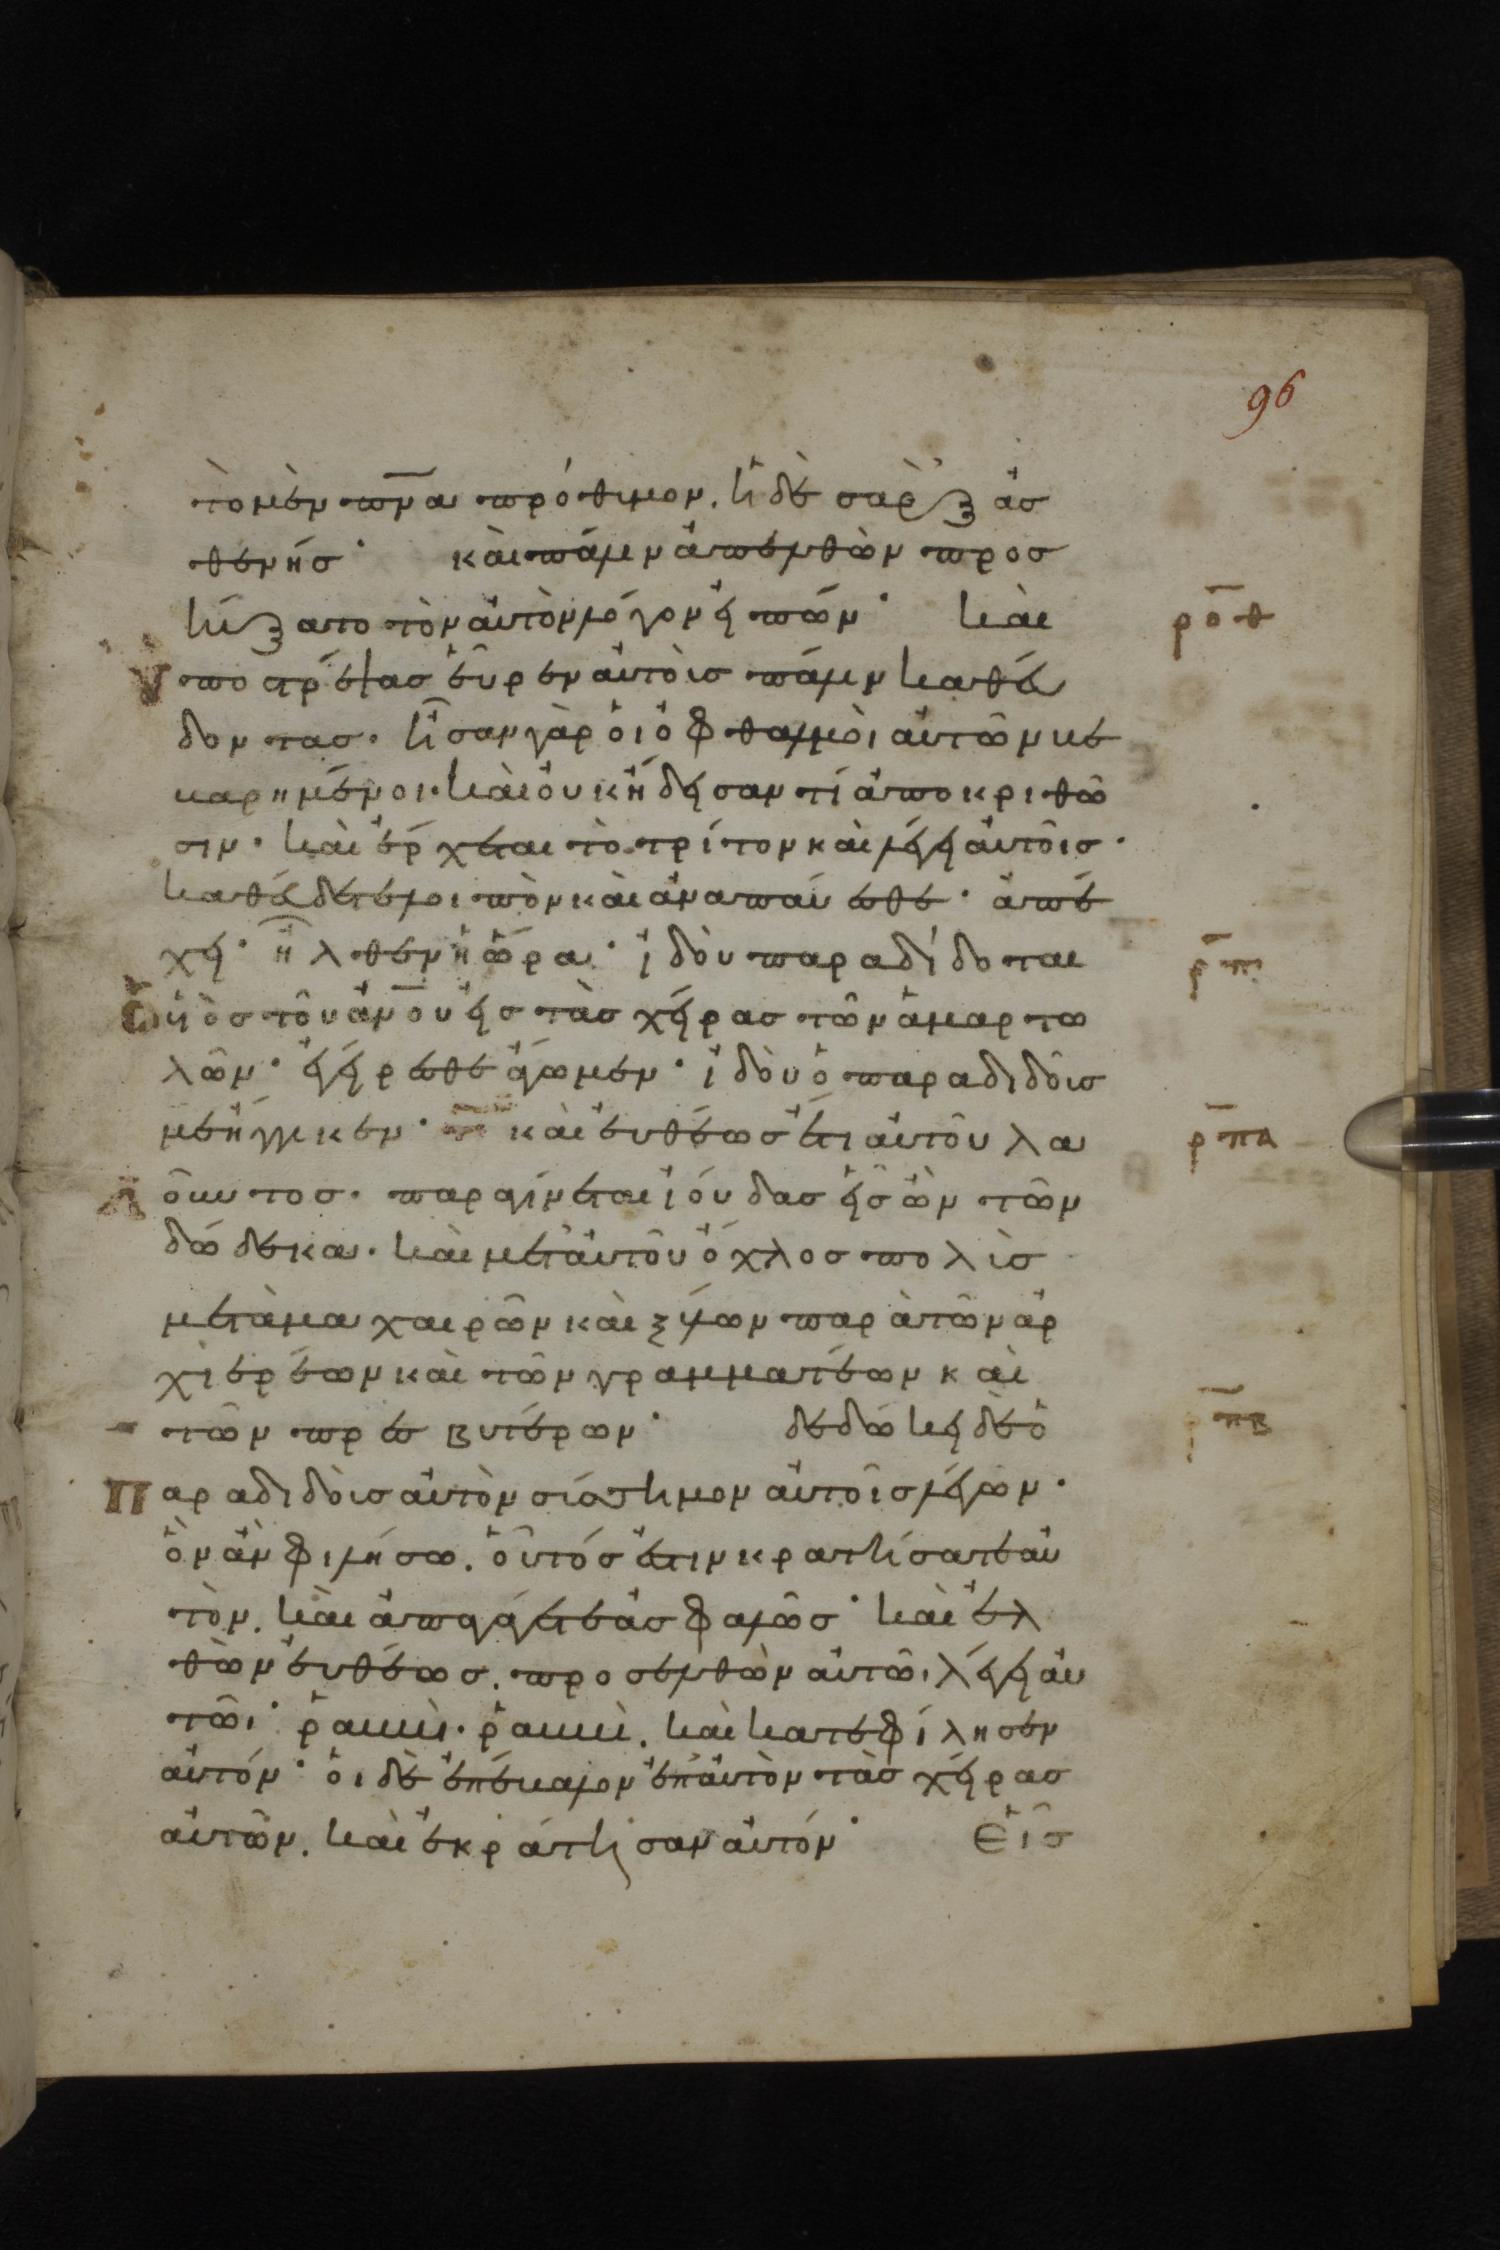 96
τὸ μὲν πν̅α πρόθιμον. ἡ δὲ σὰρξ ἀσ
θενής· καὶ πάλιν ἀπελθὼν προσ
ηύξατο τὸν αὐτὸν λόγον εἰπών· καὶ
ρ̅ο̅θ̅
ὑποστρέψας εὗρεν αὐτοὺς πάλιν καθεύ
δοντας. ἦσαν γὰρ οἱ ὀφθαλμοὶ αὐτῶν κε
καρημένοι. καὶ οὐκ ἤδεισαν τί ἀποκριθῶ
σιν. καὶ ἔρχεται τὸ τρίτον καὶ λέγει αὐτοῖς.
καθεύδετε λοιπὸν καὶ ἀναπαύεσθε. ἀπέ
χει. ἦλθεν ἡ ὥρα. ἰδοὺ παραδίδοται
ρ̅π̅
ὁ υἱὸς τοῦ ἀν̅ου εἰς τὰς χεῖρας τῶν ἁμαρτω
λῶν. ἐγείρεσθε ἄγωμεν. ἰδοὺ ὁ παραδιδούς
με ἤγγικεν. καὶ εὐθέως ἔτι αὐτοῦ λα
ρ̅π̅α̅
λοῦντος. παραγίνεται ἰούδας εἷς ὢν τῶν
δώδεκα. καὶ μετ' αὐτοῦ ὄχλος πολὺς
μετὰ μαχαιρῶν καὶ ξύλων παρὰ τῶν ἀρ
χιερέων καὶ τῶν γραμματέων καὶ
τῶν πρεσβυτέρων· δεδώκει δὲ ὁ
ρ̅π̅β̅
Παραδιδοὺς αὐτὸν σύσσημον αὐτοῖς λέγων.
ὃν ἂν φιλήσω. οὗτός ἐστιν κρατήσατε αὐ
τὸν. καὶ ἀπαγάγετε ἀσφαλῶς· καὶ ἐλ
θὼν εὐθέως. προσελθὼν αὐτῶι λέγει αὐ
τῶι· ῥαββὶ. ῥαββὶ. καὶ κατεφίλησεν
αὐτόν· οἱ δὲ ἐπέβαλον ἐπ' αὐτὸν τὰς χεῖρας
αὐτῶν. καὶ ἐκράτησαν αὐτόν· Εἷς